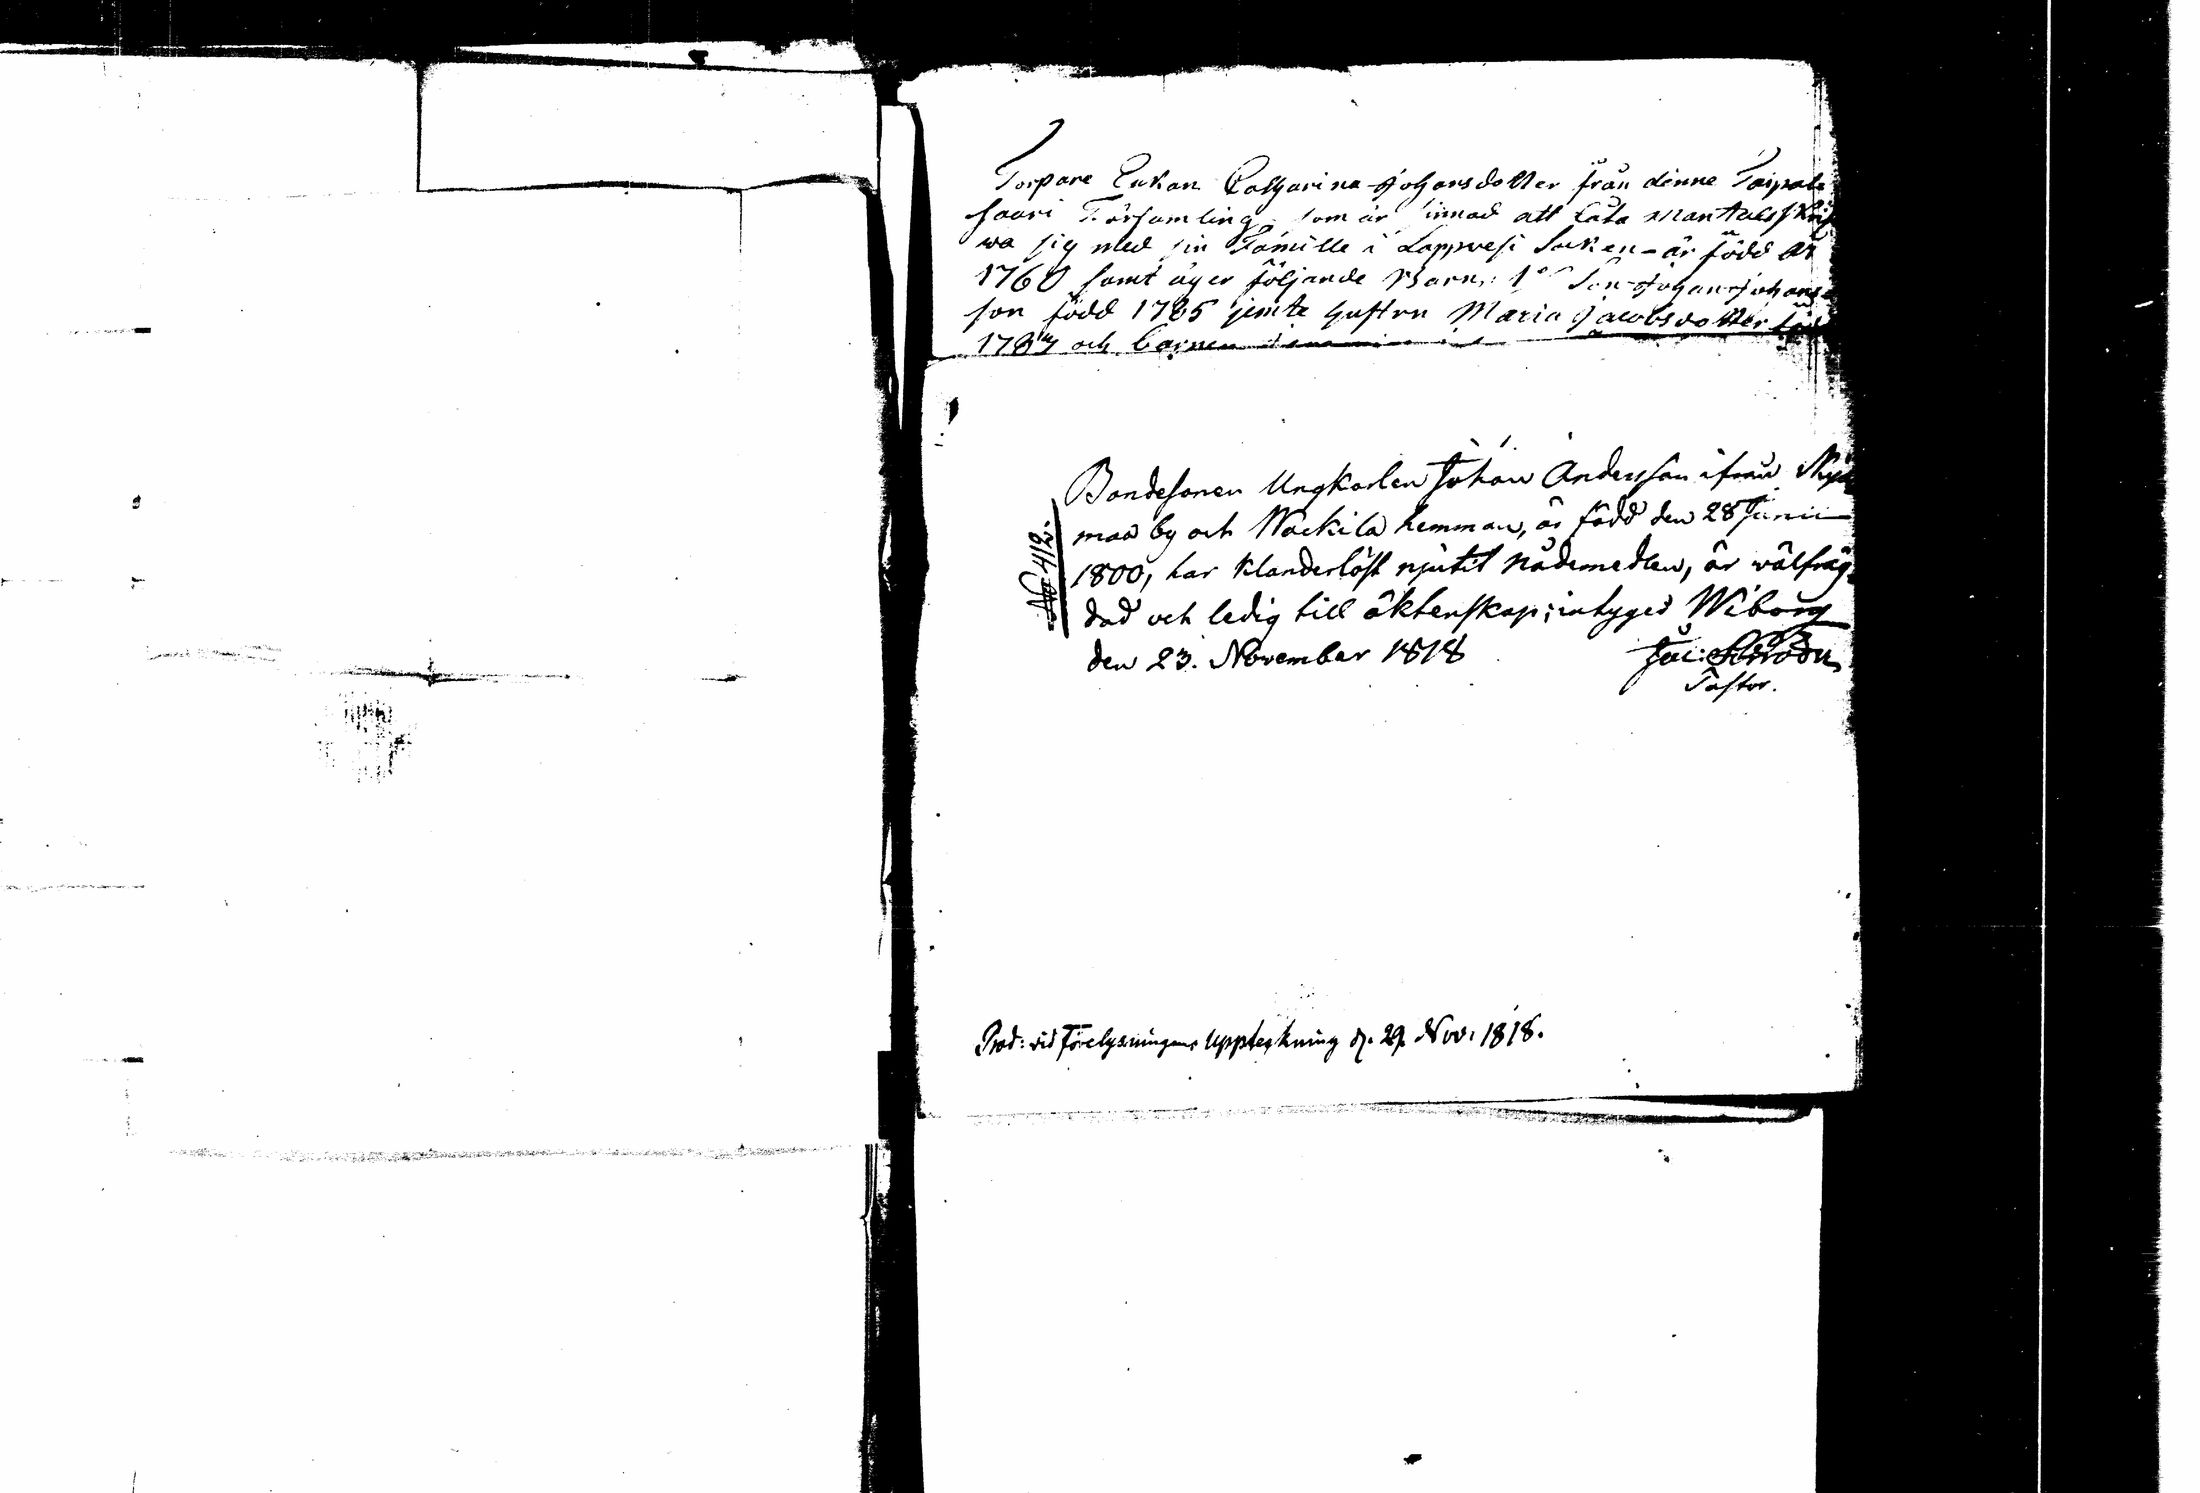 Torpare Enkan Catharina Johansdotter från denne Taipal
saari Församling, som är sinnad att låta Mantalsskrif
wa sig med sin Familie i Lappvesi Soken - är född år
1760 samt äger följande Barn: 1º Son Johan Johans
son född 1785 jemte hustru Maria Jacobsdotter föd
och barnen
Bondesonen Ungkarlen Johan Andersson ifrån
maa by och Nackila hemman, är född den 28 Junii
1800, har klanderlöst njutit nådemedlen, är wälfräg
dad och ledig till äktenskap; intygas Wiborg
den 23. November 1818
Jac:
Pastor.
No 412.
Prod: vid Förelysningens uppteckning d. 29. Nov. 1818.